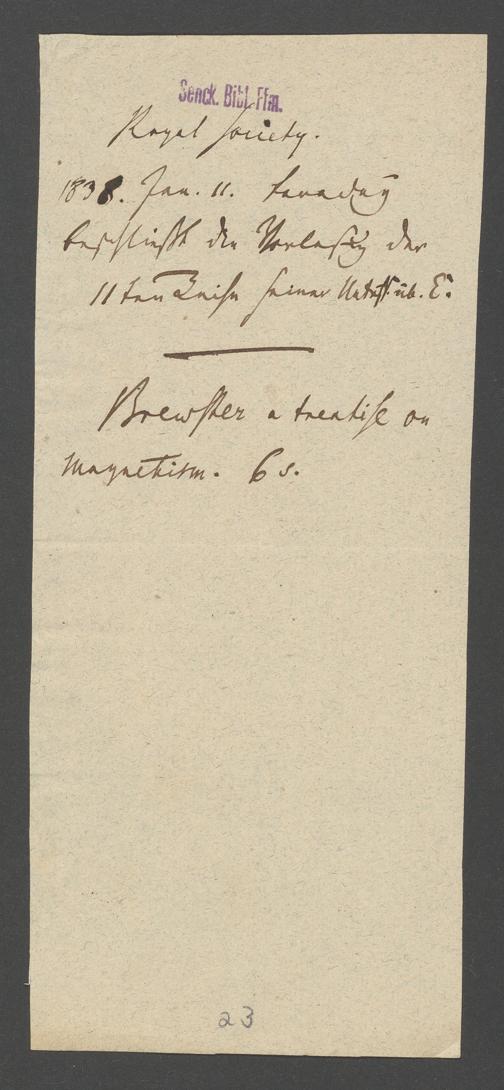 Senck. Bibl. Ffm.
Royal Society.
1838. Jan. 11. Faraday
beschließt die Vorlesg der
11ten Reihe seiner Unters. üb. E.
Brewster a treatise on
magnetism. 6 s.
23